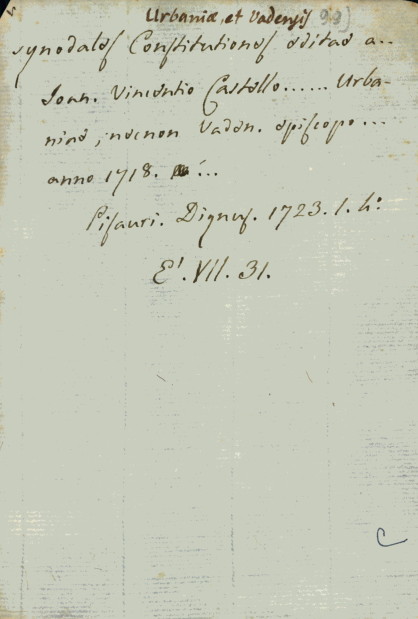 Urbaniæ et Vadensis 99)
Synodales Constitutiones editae a..
Ioan. Vincentio Castello...... Urba-
niae, necnon Vaden. episcopo...
anno 1718. ...
Pisauri. Dignus. 1723. 1. 4:
E'. VII. 31.
C